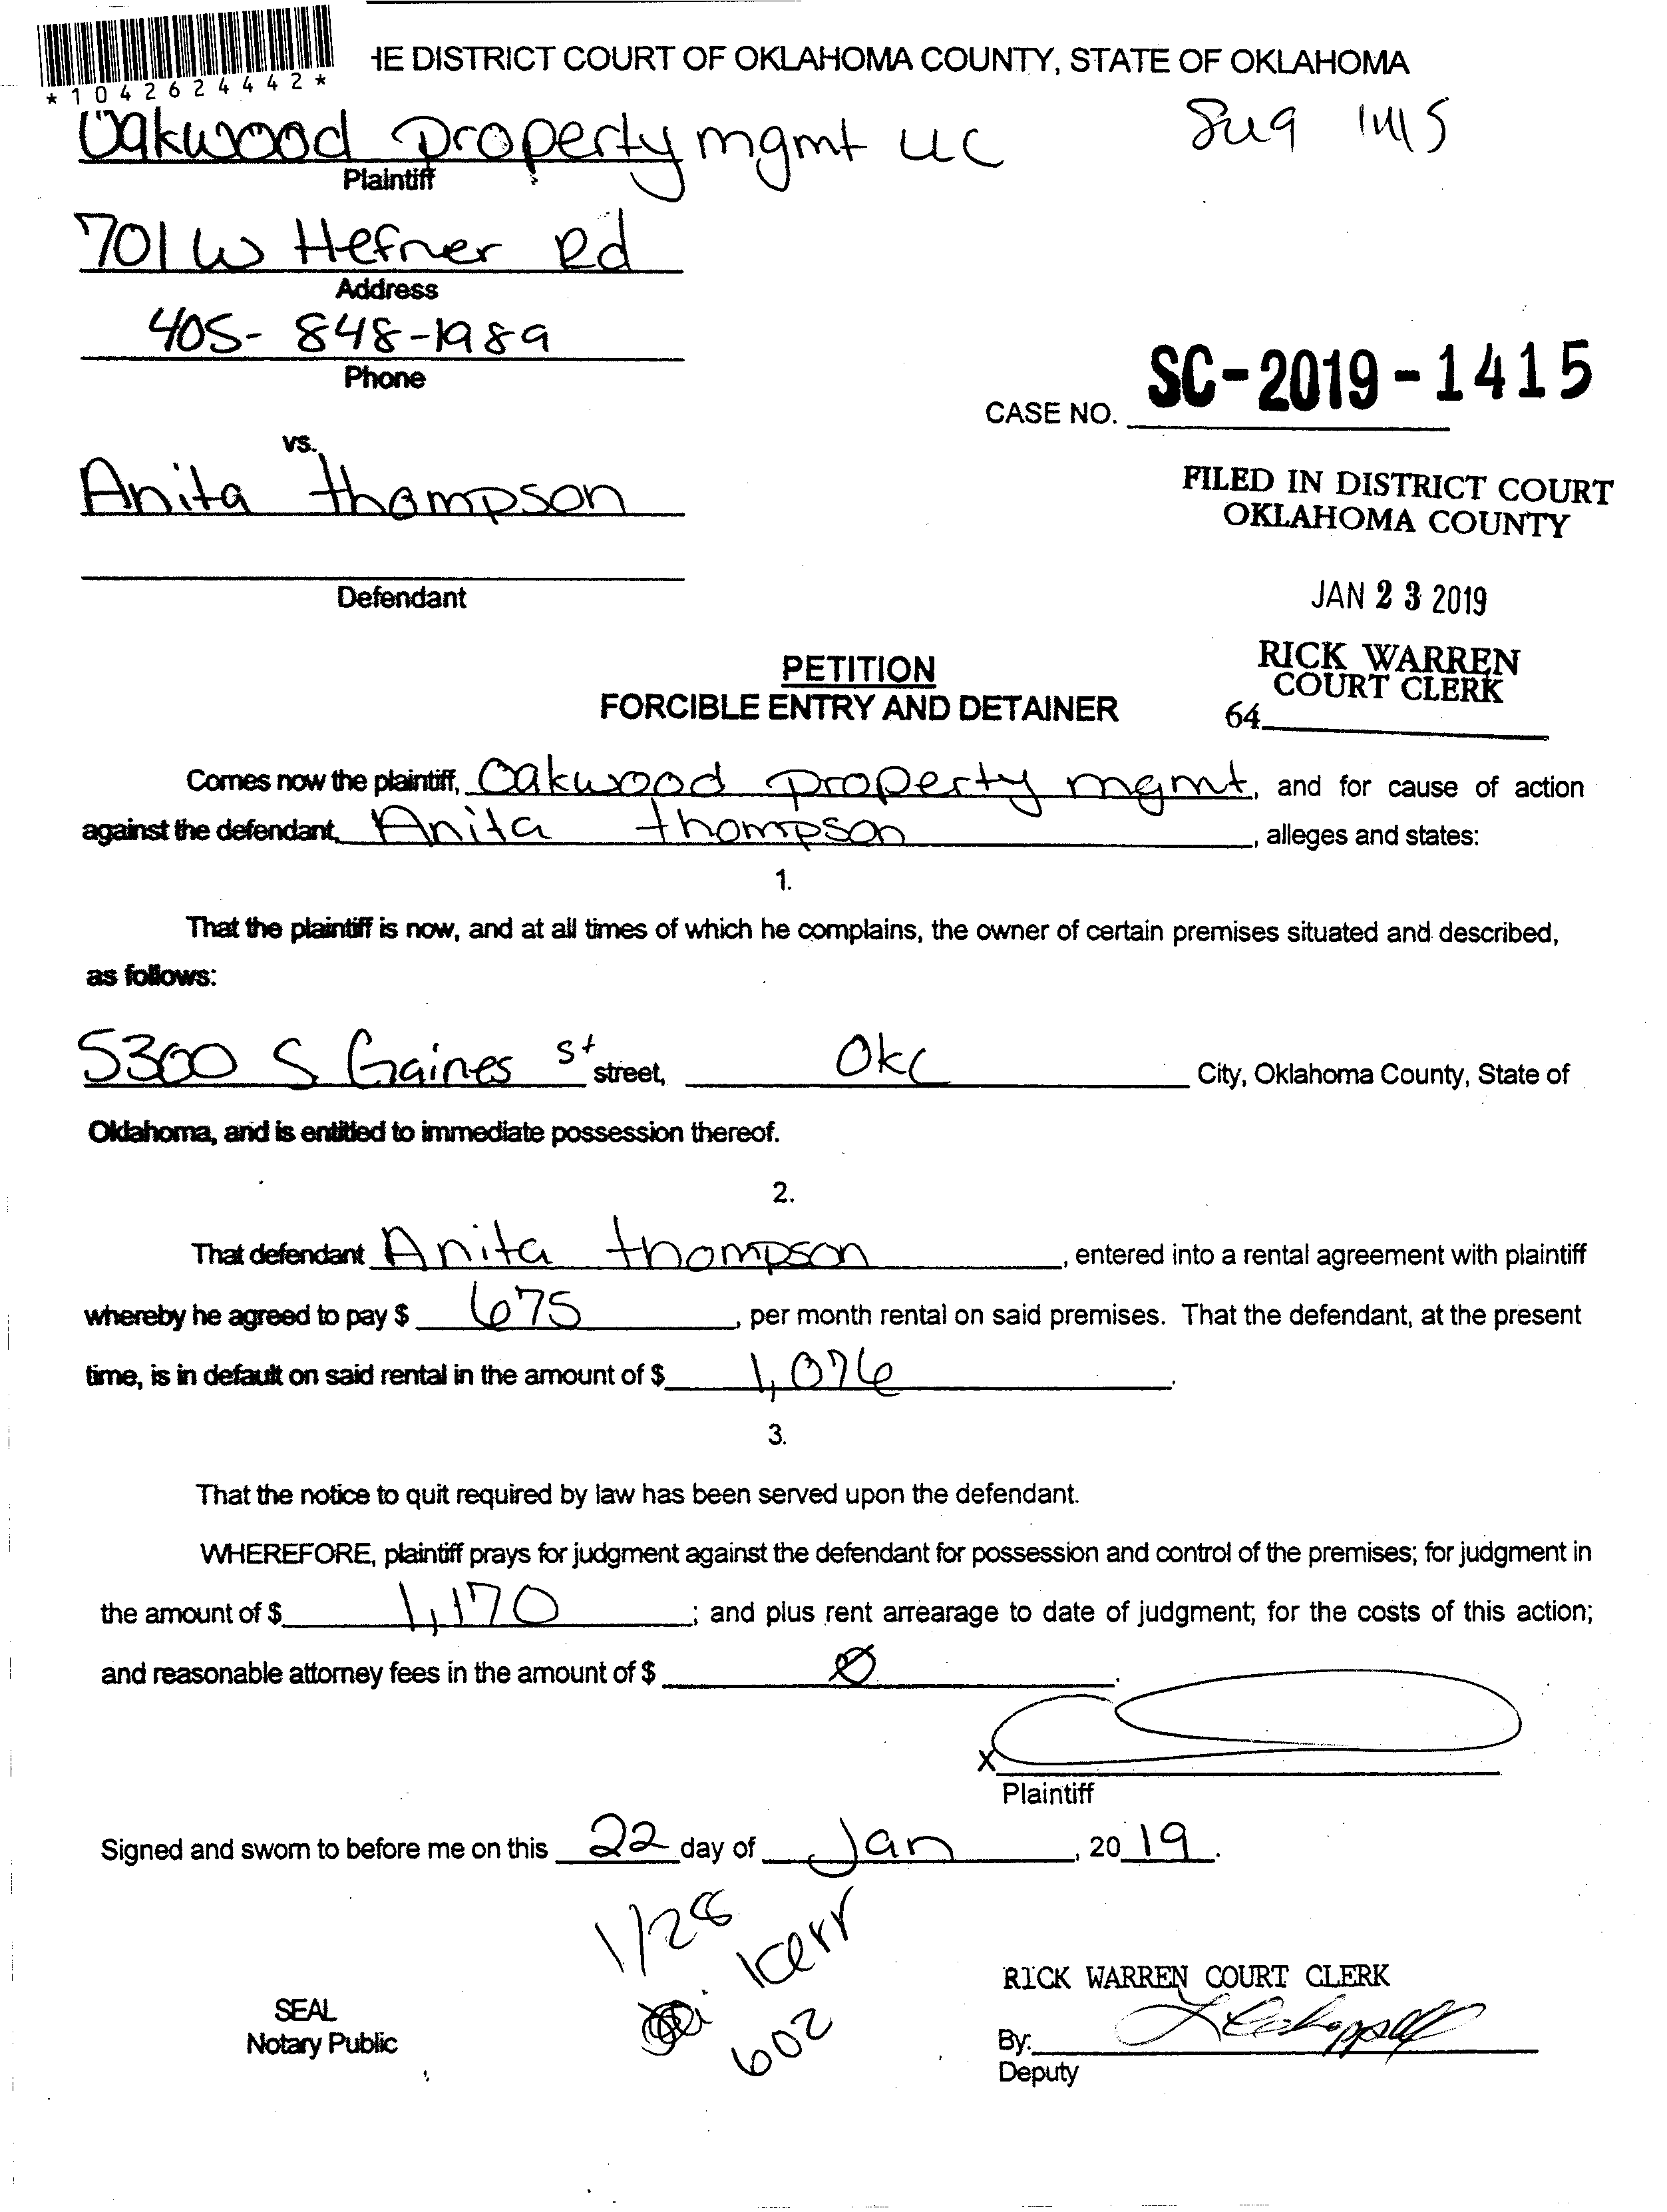 *1042624442*
HE DISTRICT COURT OF OKLAHOMA COUNTY, STATE OF OKLAHOMA
Oakwood property mgmt LLC
Plaintiff
701 W Hefner Rd
Address
405-848-1989
Phone
CASE NO. SC-2019-1415
vs.
Anita thompson
Defendant
FILED IN DISTRICT COURT
OKLAHOMA COUNTY
JAN 23 2019
RICK WARREN
COURT CLERK
64
PETITION
FORCIBLE ENTRY AND DETAINER
Comes now the plaintiff, Oakwood property mgmt, and for cause of action
against the defendant, Anita thompson, alleges and states:
1.
That the plaintiff is now, and at all times of which he complains, the owner of certain premises situated and described,
as follows:
5300 S Gaines st street, OKC City, Oklahoma County, State of
Oklahoma, and is entitled to immediate possession thereof.
2.
That defendant Anita thompson, entered into a rental agreement with plaintiff
whereby he agreed to pay $ 675, per month rental on said premises. That the defendant, at the present
time, is in default on said rental in the amount of $ 1,076.
3.
That the notice to quit required by law has been served upon the defendant.
WHEREFORE, plaintiff prays for judgment against the defendant for possession and control of the premises; for judgment in
the amount of $ 1,170; and plus rent arrearage to date of judgment; for the costs of this action;
and reasonable attorney fees in the amount of $ Ø.
X
Plaintiff
Signed and sworn to before me on this 22 day of Jan, 2019.
1/28
Kerr
602
SEAL
Notary Public
RICK WARREN COURT CLERK
By:
Deputy